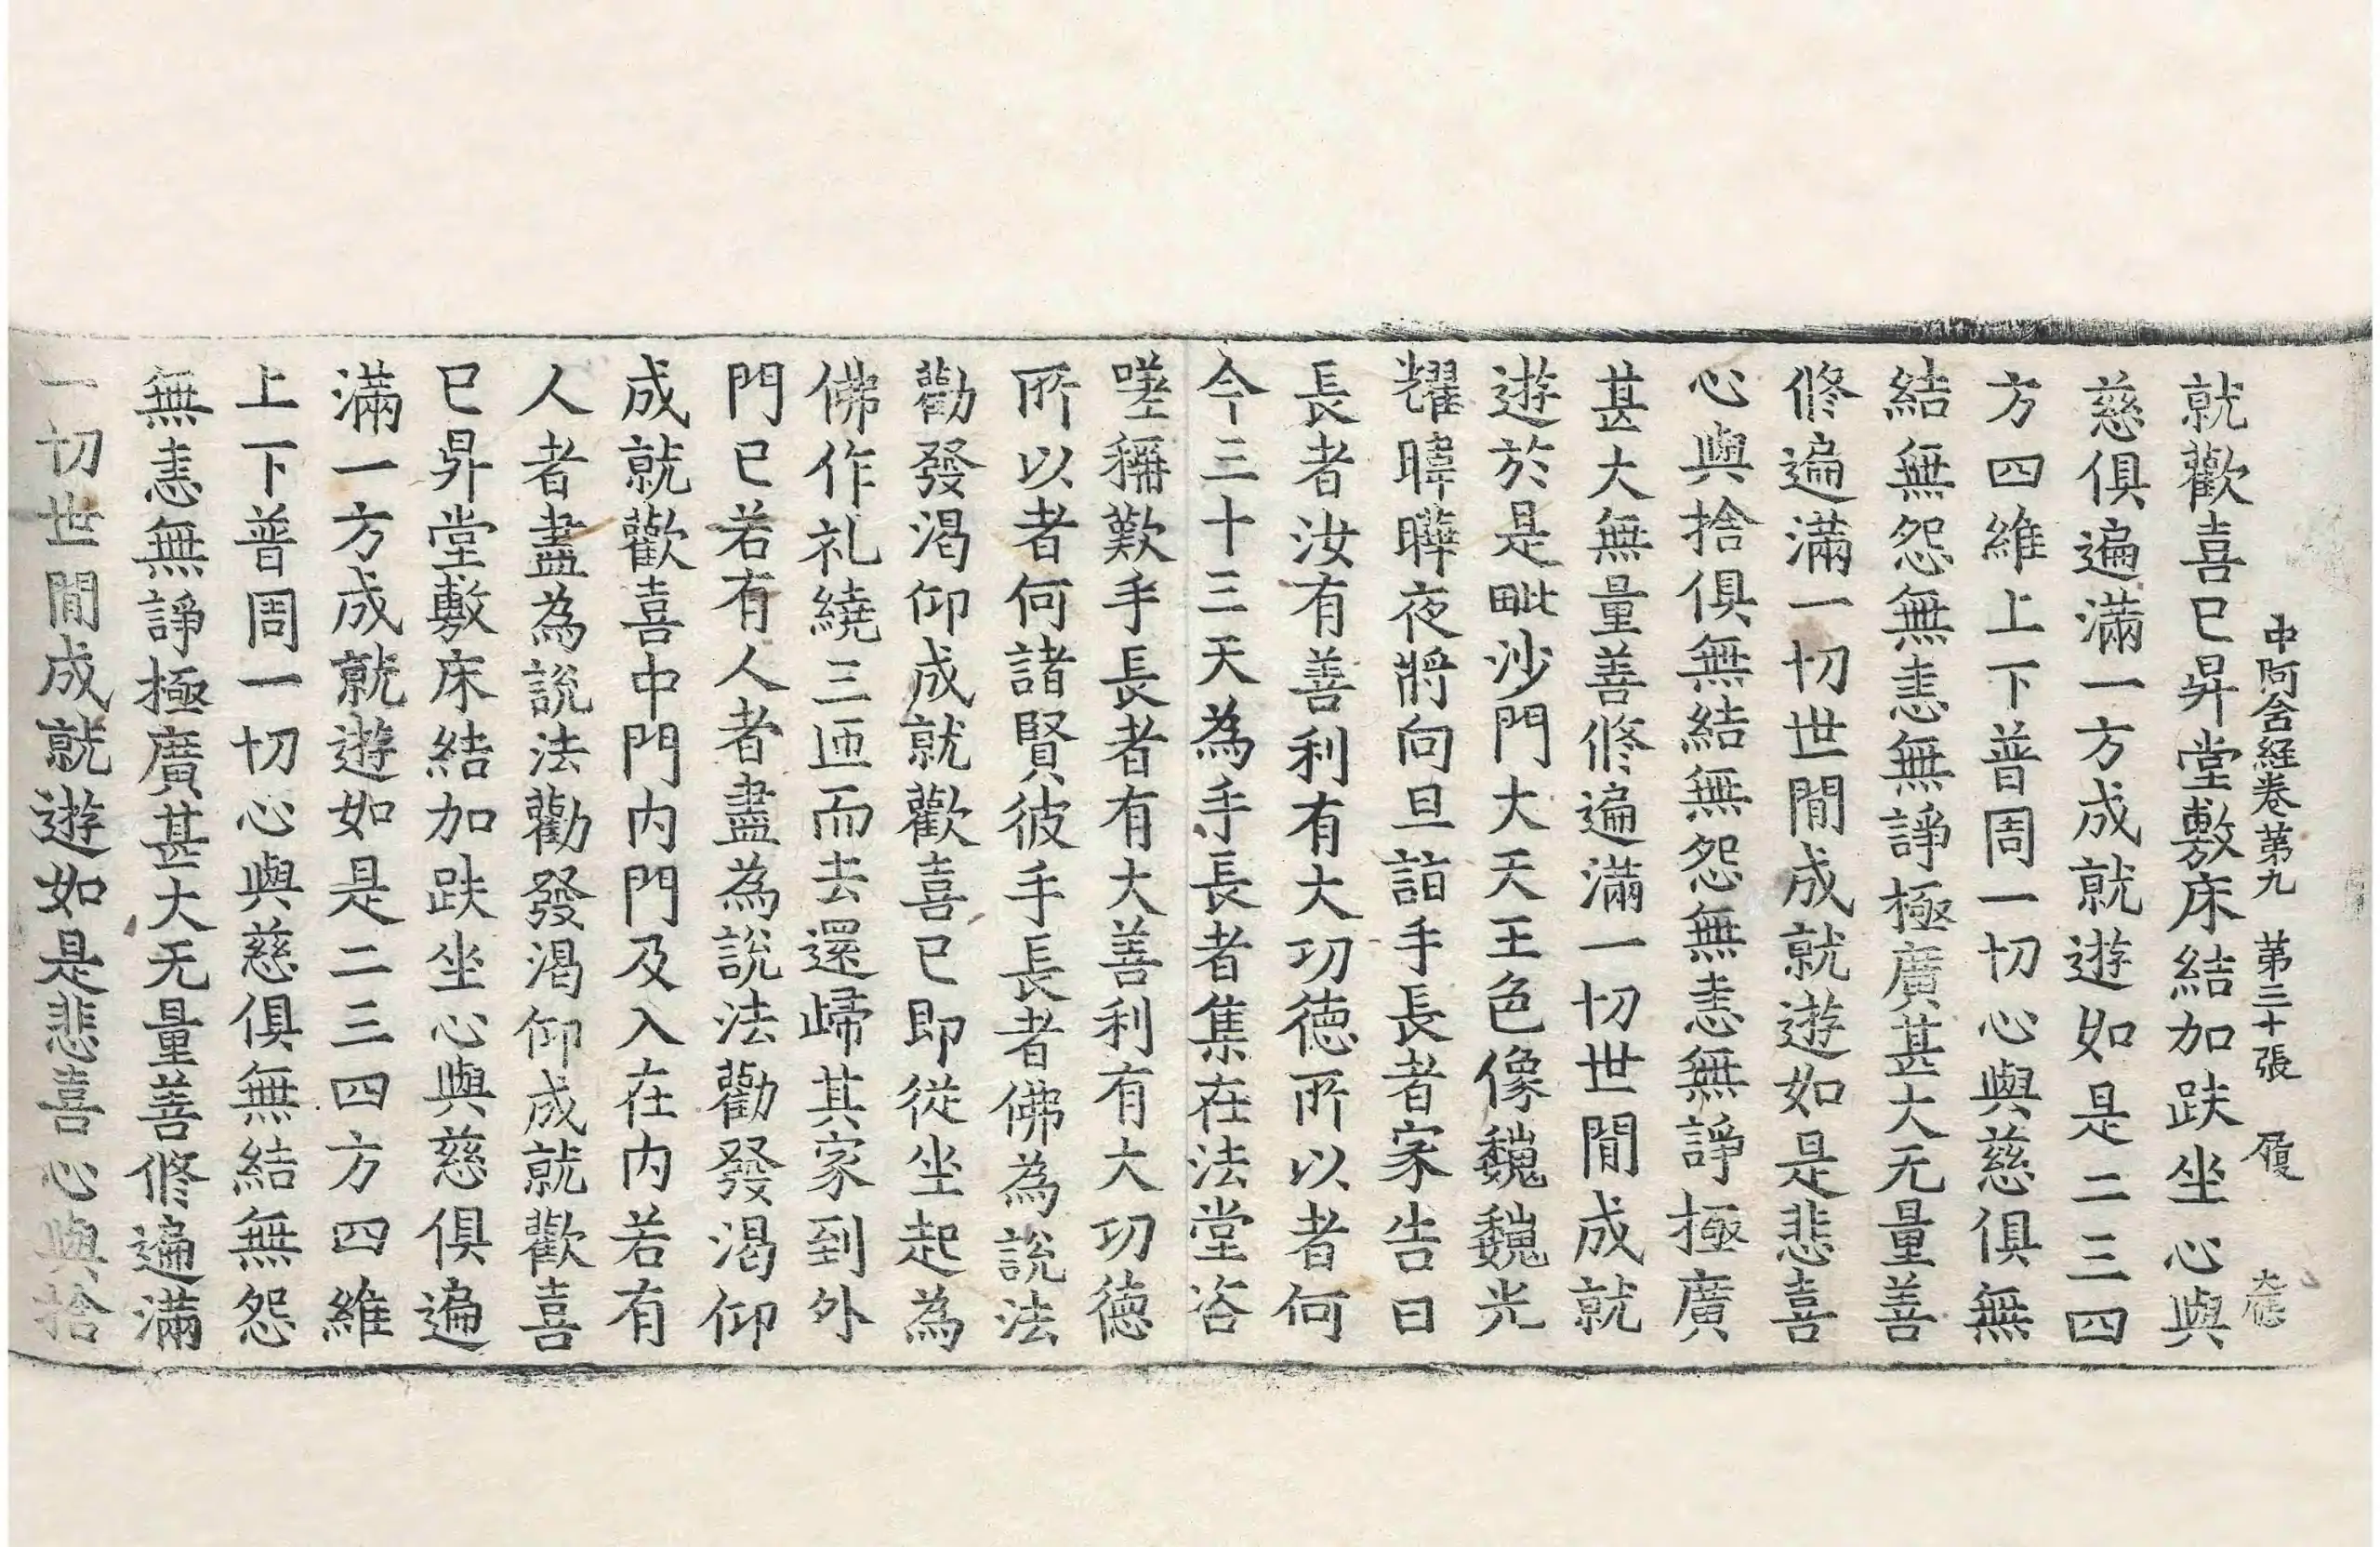 中阿含経卷第九　第三十張　履
就歡喜已昇堂敷床結加趺坐心與
慈俱遍滿一方成就遊如是二三四
方四維上下普周一切心與慈俱無
結無怨無恚無諍極廣甚大无量善
修遍滿一切世閒成就遊如是悲喜
心與捨俱無結無怨無恚無諍極廣
甚大無量善修遍滿一切世閒成就
遊於是毗沙門大天王色像巍巍光
耀暐曄夜將向旦詣手長者家告曰
長者汝有善利有大功徳所以者何
今三十三天為手長者集在法堂咨
嗟稱歎手長者有大善利有大功德
所以者何諸賢彼手長者佛為說法
勸發渴仰成就歡喜已即從坐起為
佛作礼繞三匝而去還歸其家到外
門已若有人者盡為說法勸發渴仰
成就歡喜中門内門及入在内若有
人者盡為說法勸發渴仰成就歡喜
已昇堂敷床結加趺坐心與慈俱遍
滿一方成就遊如是二三四方四維
上下普周一切心與慈俱無結無怨
無恚無諍極廣甚大无量善修遍滿
一切世閒成就遊如是悲喜心與捨